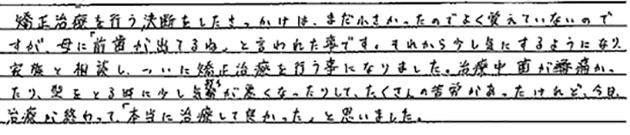 矯正治療を行う決断をしたきっかけは、まだ小さかったのでよく覚えていないので
すが、母に「前歯が出てるね」と言われた事です。それから少し気にするようになり、
家族と相談し、ついに矯正治療を行う事になりました。治療中歯が痛か
ったり、型をとる時に少し気分が悪くなったりして、たくさんの苦労があったけれど、今日、
治療が終わって、「本当に治療して良かった」と思いました。